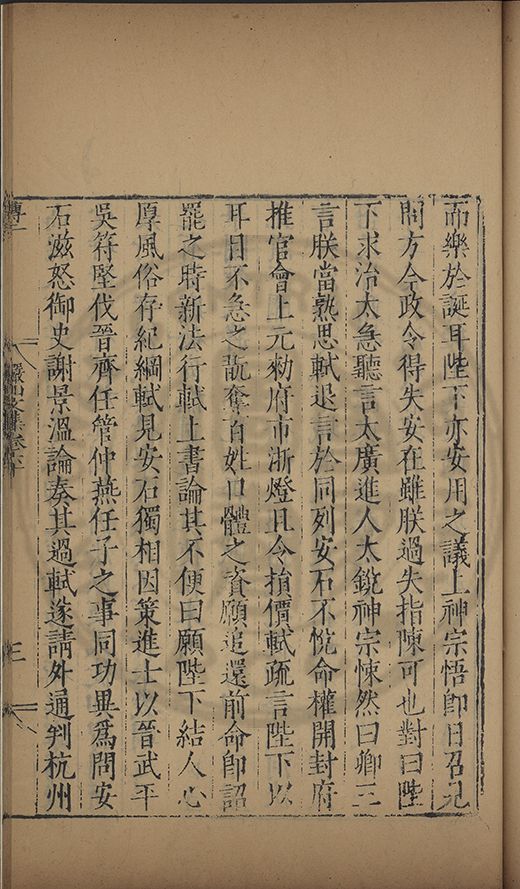 而樂於誕耳陛下亦安用之議上神宗悟即日召見
問方今政令得失安在雖朕過失指陳可也對曰陛
下求治太急聽言太廣進人太銳神宗悚然曰卿三
言朕當熟思軾退言於同列安石不悅命權開封府
推官會上元勑府市浙燈且令損價軾疏言陛下以
耳目不急之翫奪百姓口體之資願追還前命即詔
罷之時新法行軾上書論其不便曰願陛下結人心
厚風俗存紀綱軾見安石獨相因策進士以晉武平
吳符堅伐晉齊任管仲燕任子之事同功異為問安
石滋怒御史謝景溫論奏其過軾遂請外通判杭州
傳一
三